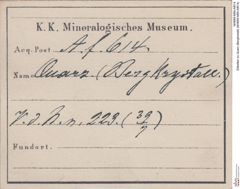 K. K. Mineralogisches Museum.
Acq. Post A. f. 614
Name Quarz (Bergkrystall.)
V. d. B. n. 223. (39/7)
Fundort.